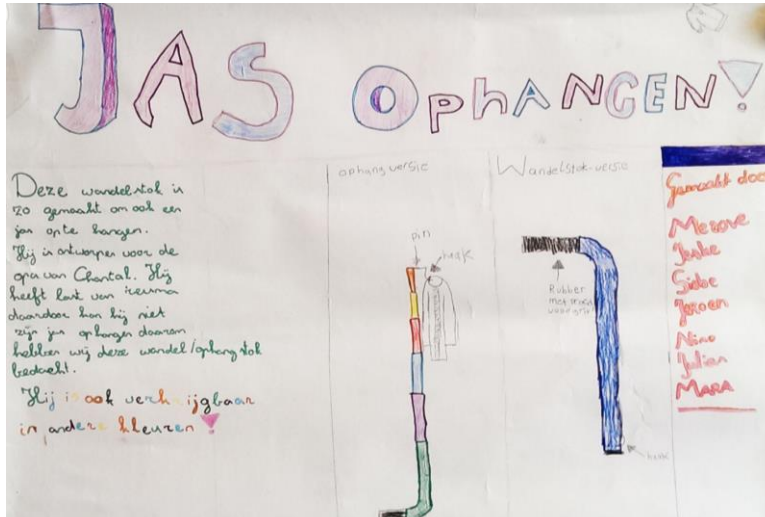 JAS OPHANGEN!
Deze wandelstok is
zo gemaakt om ook een
jas op te hangen.
Hij is ontworpen voor de
opa van Chantal. Hij
heeft last van reuma
daardoor kan hij niet
zijn jas ophangen daarom
hebben wij deze wandel/ophangstok
bedacht.
Hij is ook verkrijgbaar
in andere kleuren!
ophang versie
pin
haak
Wandelstok-versie
Rubber
voor grip
haak
Gemaakt door
Jeske
Siebe
Jeroen
Nino
Julian
MARA